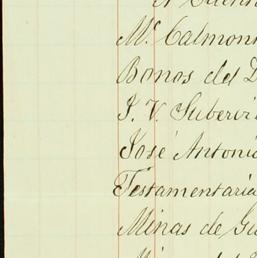 Mc Calmont
Bonos del D
J. V. Subervi
José Antonio
Testamentaria
Minas de Gu